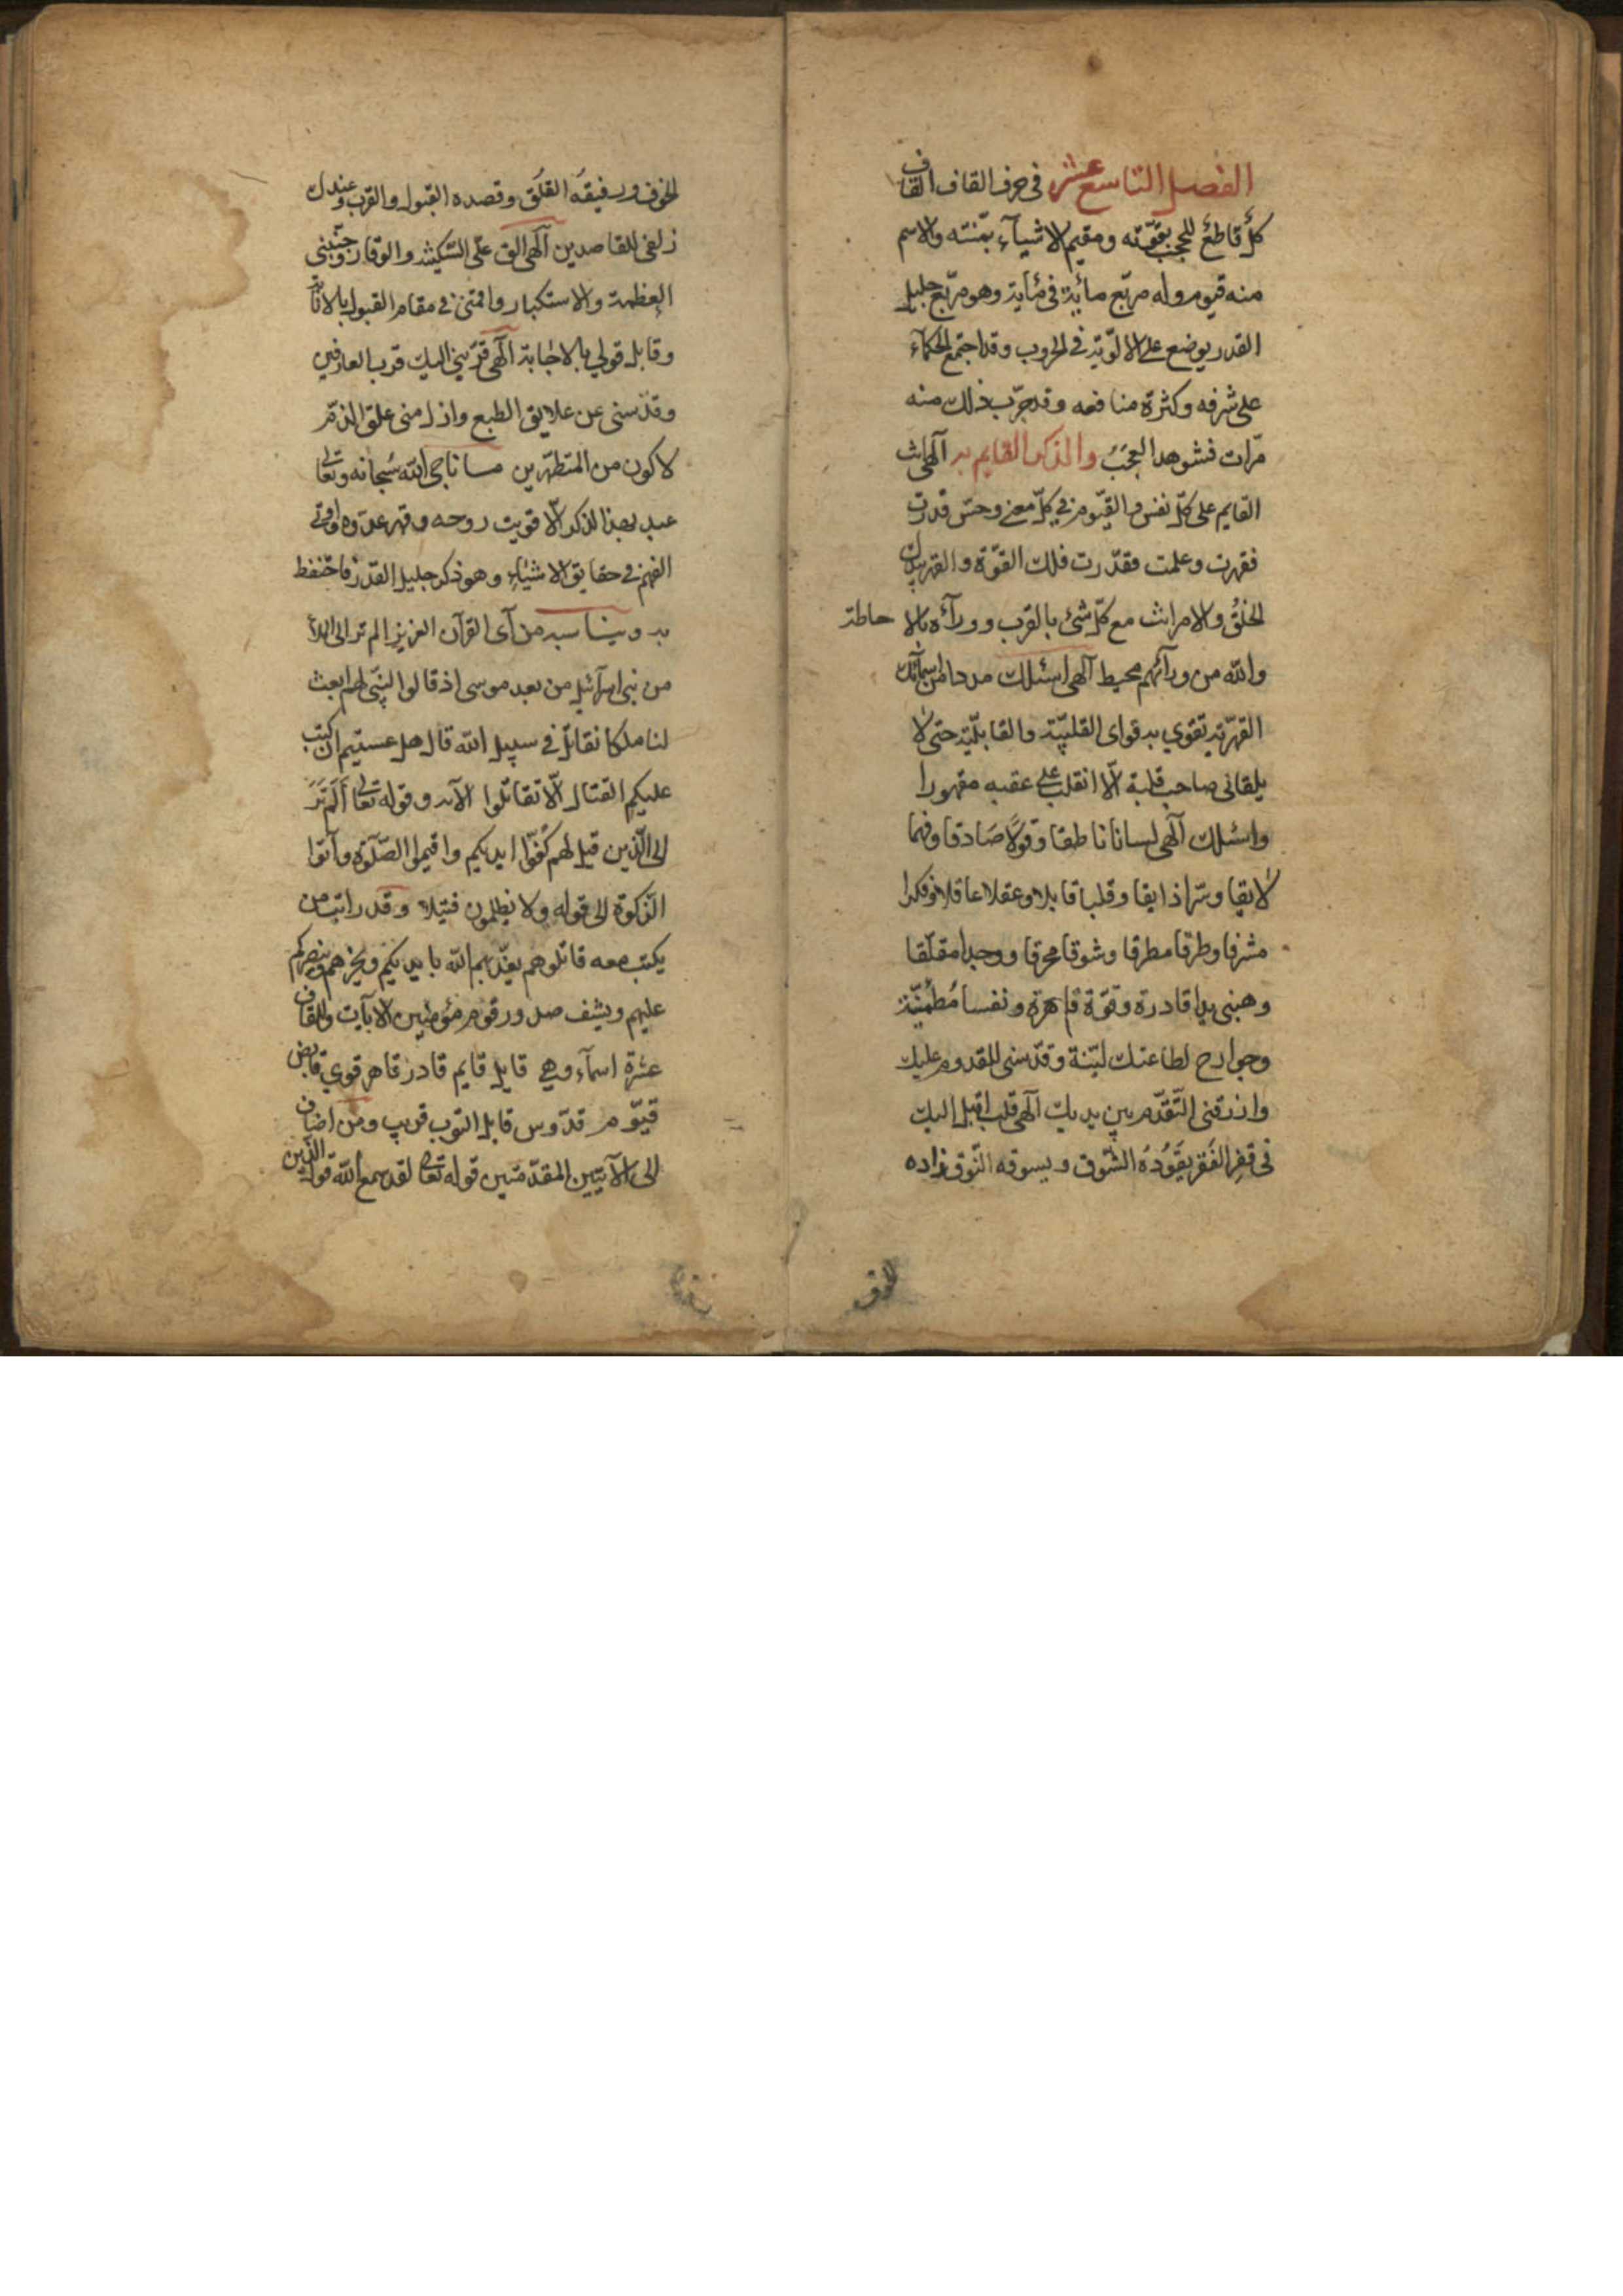 الفصل التاسع عشر في حرف القاف القاف
كلّ قاطع للحجب بقوّته ومقيم الاشيآء بمنّته والاسم
منه قيوم وله مربّع مائية في مائة وهو مربّع جليل
القدر يوضع على الالويّة في الحروب وقد اجتمع الحكمآء
على شرفه وكثرة منافعه وقد جرّب ذلك منه
مرّات فشوهد العجب والذكر القايم به آلهى انت
القايم على كلّ نفس والقيّوم في كلّ معنى وحسّ قدرت
فقهرت وعلمت فقدّرت فلك القوّة والقهر بيدك
الخلق والامر انت مع كلّ شئ بالقرب وورآءه بالاحاطة
والله من ورآئهم محيط آلهى اسئلك مددا من اسمآئك
القهريّة تقوي به قواى القلبيّة والقابليّة حتى لا
يلقانى صاحب قلبة الّا انقلب على عقبه مقهورا
واسئلك آلهى لسانا ناطقا وقولًا صادقا وفهما
لايقا وسرّا ذايقا وقلبا قابلا وعقلا عاقلا وفكرا
مشرفا وطرفا مطرقا وشوقا محرقا ووجدا مقلّقا
وهبنى يدا قادرة وقوّة قاهرة ونفسا مُطمئنّة
وجوارح لطاعتك ليّنة وقدّسنى للقدوم عليك
وارزقنى التّقدّم بين يديك آلهى قلب اقبل اليك
في قفر الفقر يقوده الشوق ويسوقه التّوق زاده
الخوف
الخوف ورفيقه القلق وقصده القبول والقرب وعندك
زلفى للقاصدين آلهى الق علّى السّكينة والوقار وجنّبنى
العظمة والاستكبار واقمنى في مقام القبول بالانابة
وقابل قولي بالاجابة آلهى قرّبنى اليك قرب العارفين
وقدّسنى عن علايق الطبع وازل منى علق الذمّ
لاكون من المتطهّرين ما ناجى الله سُبحانه وتعالى
عبد بهذا الذكر الّا قويت روحه وقهر عدوه واوتي
الفهم في حقايق الاشيآء وهو ذكر جليل القدر فاحتفظ
به ويناسبه من آى القرآن العزيز الم تر الى الملأ
من بنى اسرآئيل من بعد موسى اذ قالوا لنبّى لهم ابعث
لنا ملكا نقاتل في سبيل الله قال هل عسيتم ان كتب
عليكم القتال الّا تقاتلوا الآية وقوله تعالى أَلَم تَرَ
الى الّذين قيل لهم كُفّوا ايديكم واقيموا الصّلوة وآتوا
الزكوة الى قوله ولا يظلمون فتيلا وقد رايت من
يكتب معه قاتلوهم يعذّبهم الله بايديكم ويخزهم وينصركم
عليهم ويشف صدور قوم مؤمنين الآيات وللقاف
عشرة اسمآء وهي قابل قايم قادر قاهر قوي قابض
قيّوم قدّوس قابل التوب قريب ومن اضاف
الى الآيتين المقدّمتين قوله تعالى لقد سمع الله قول الّذين